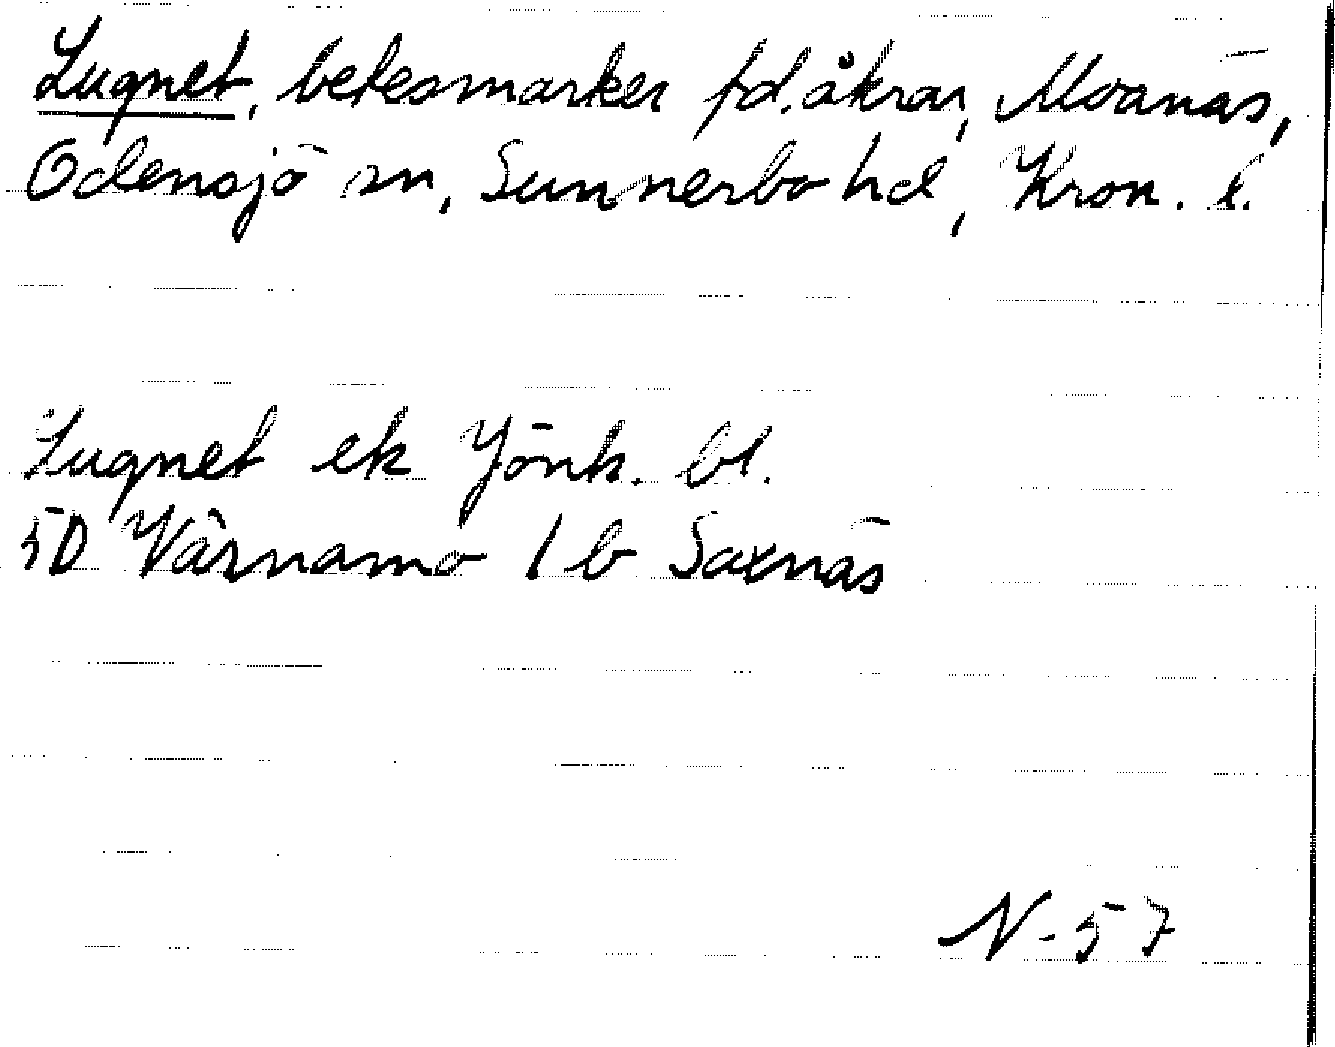 Lugnet, betesmarker fd. åkrar, Moanäs,
Odensjö sn, Sunnerbo hd, Kron. l.
Lugnet ek Jönk. bl.
5D Värnamo 1 b Saxnäs
N-57